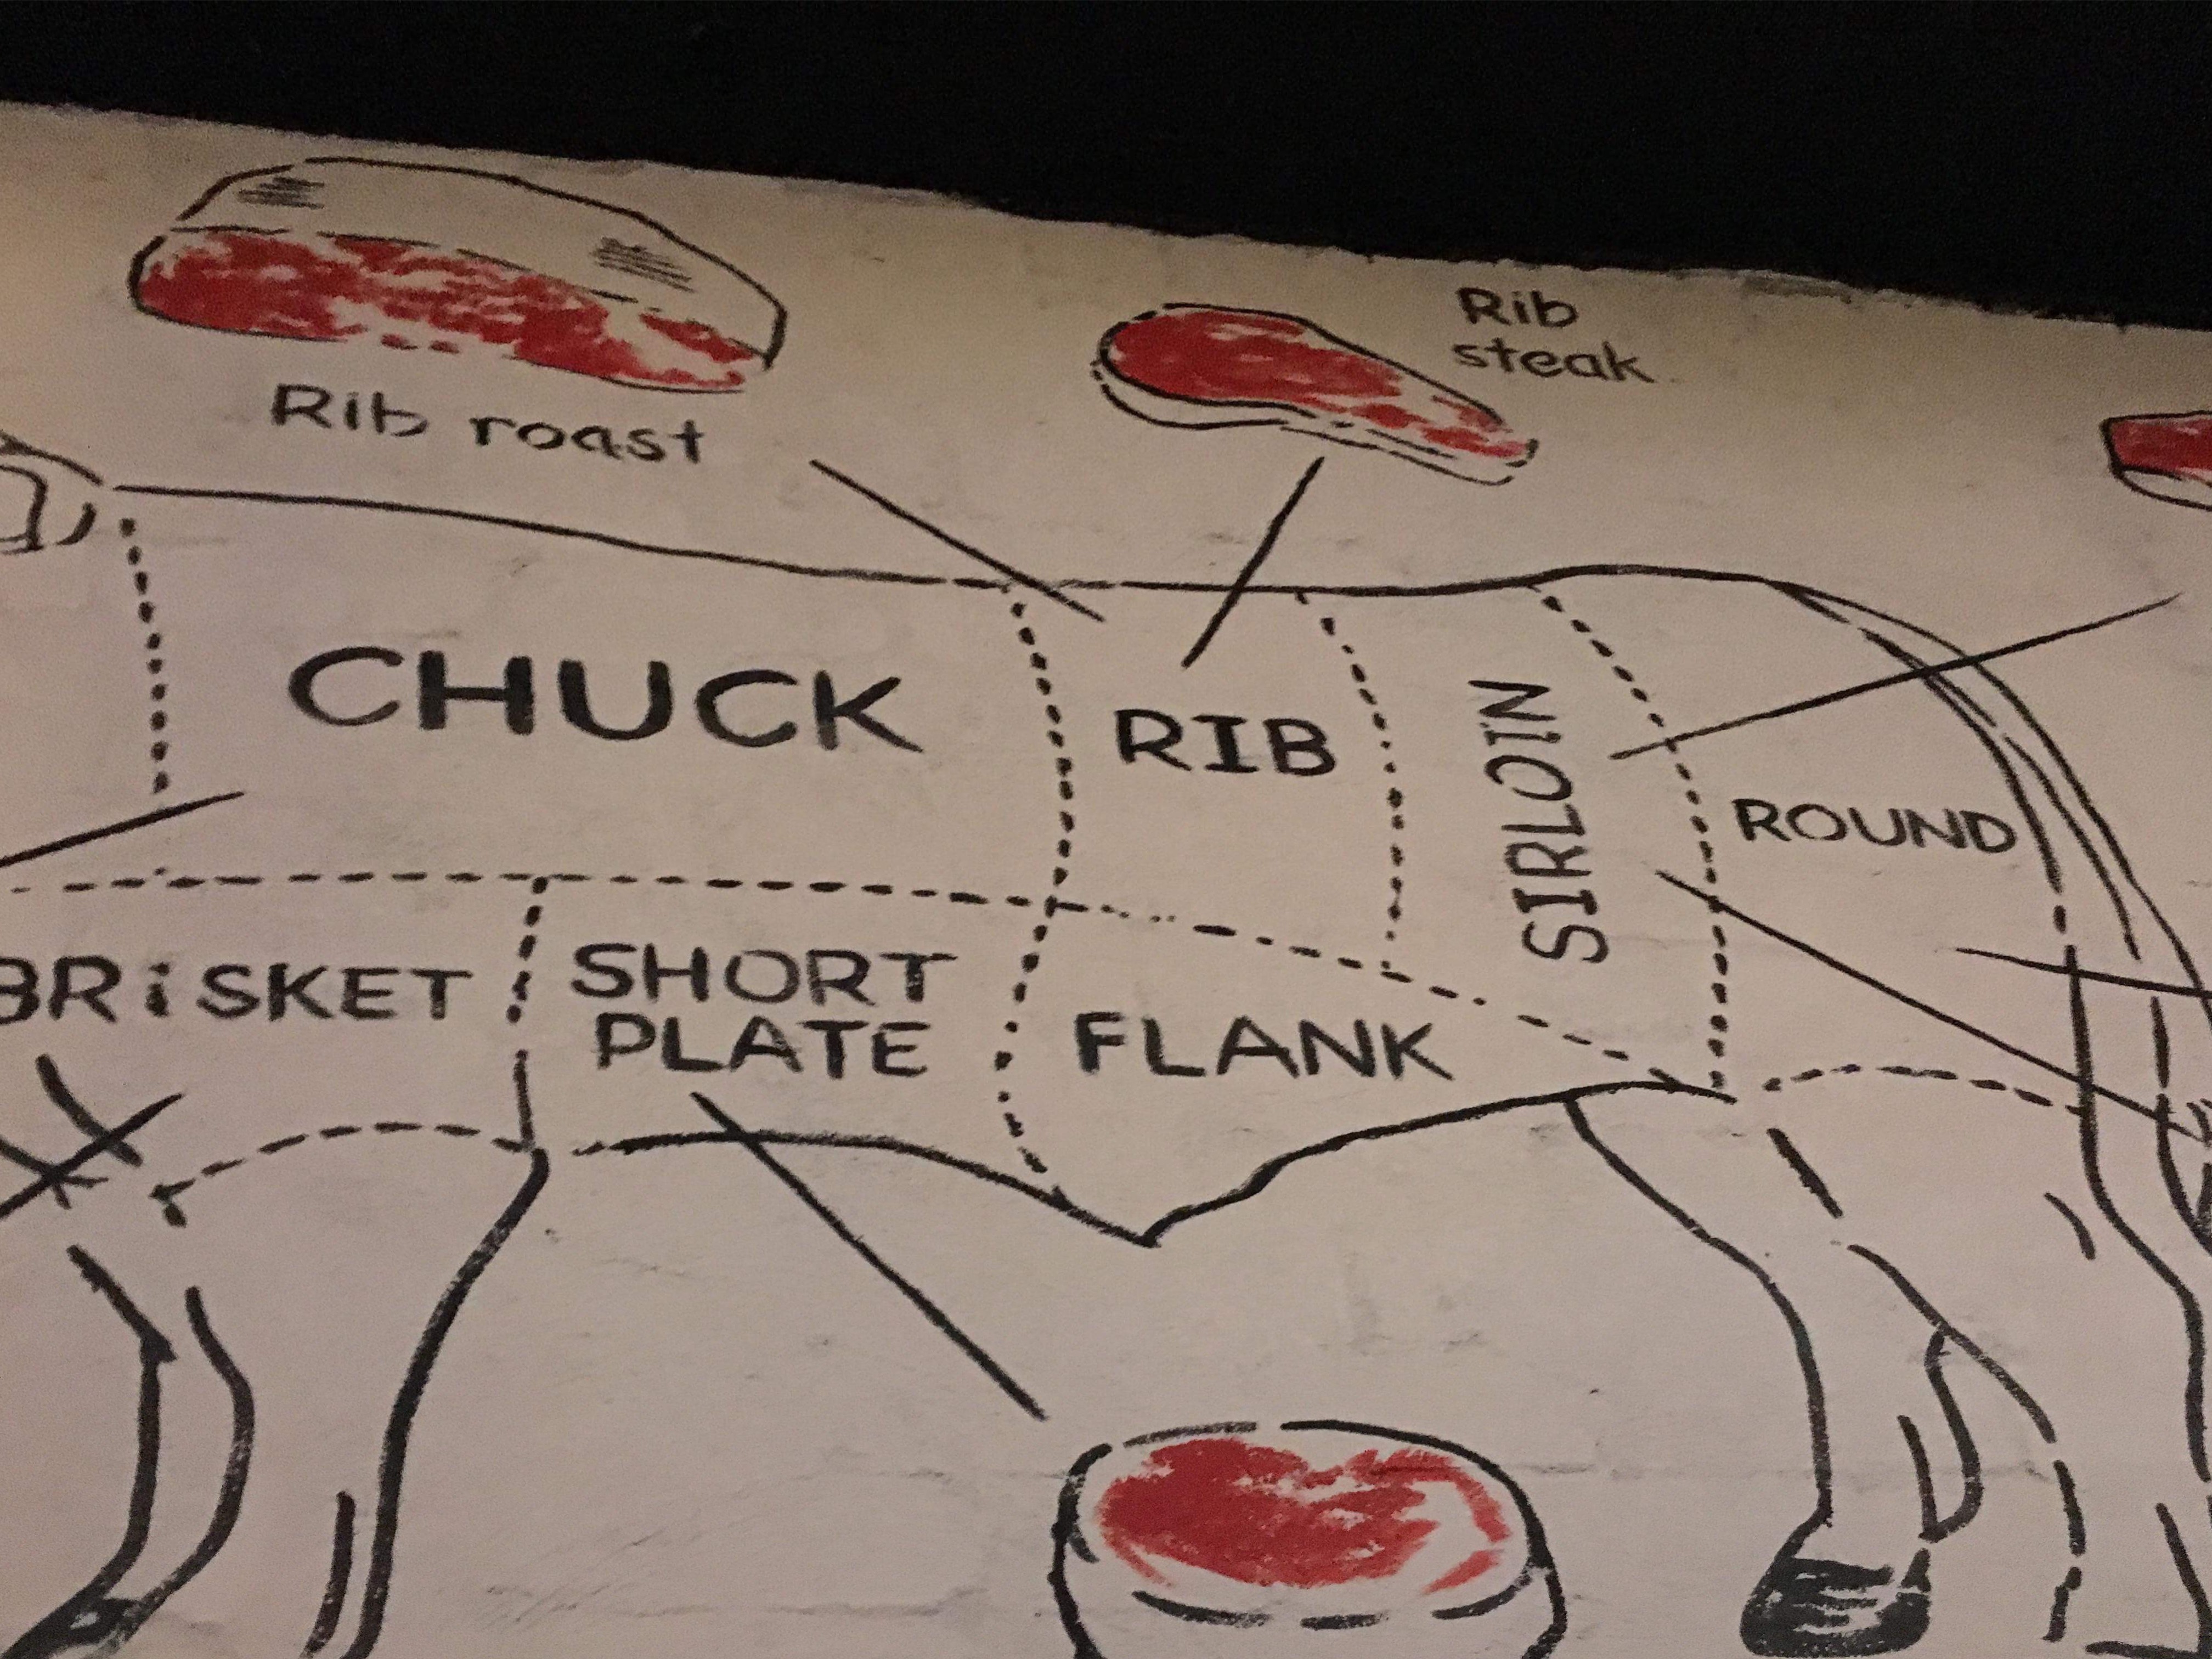 Rib
steak
Rib roast
CHUCK
RIB
SIRLOIN
ROUND
BRiSKET
SHORT
PLATE
FLANK